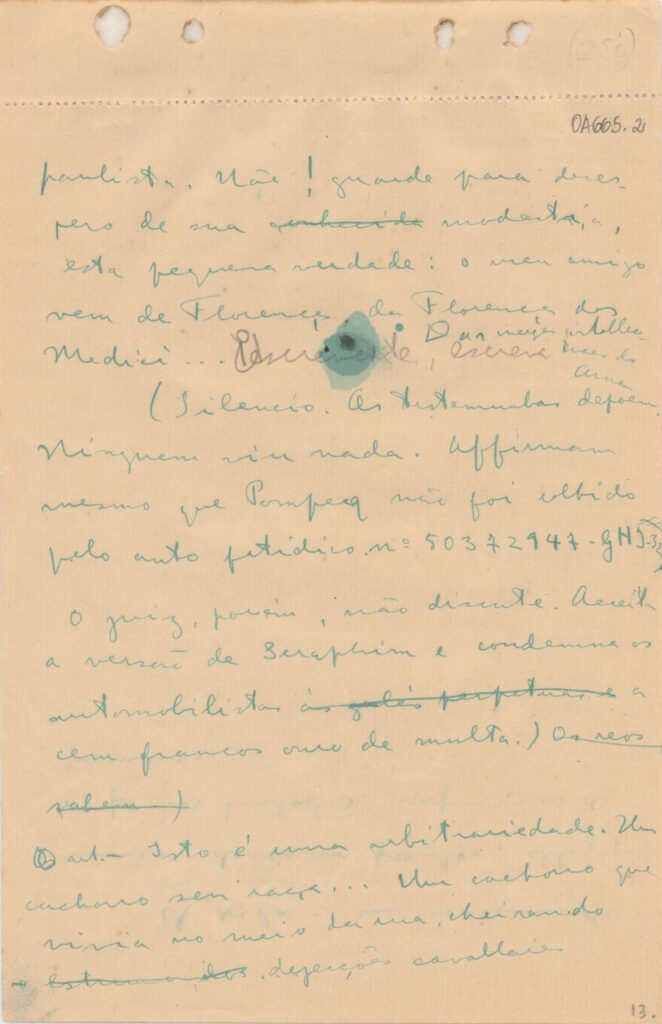 OA665.2
paulista. Não! guarde para deses-
pero de sua conhecida modestia,
esta pequena verdade: o meu amigo
vem de Florença, da Florença dos
Medici... Das meigas
(Silencio. As testemunhas depõem
Ninguem viu nada. Affirmam
mesmo que Pompeq não foi colhido
pelo auto fatidico nº 50372947-GHJ
O juiz, porém, não discute. Aceita
a versão de Seraphim e condemna os
automobilistas ás galés perpetuas e a
cem francos ouro de multa.) Os reos
sahem)
O aut.- Isto é uma arbitrariedade. Um
cachorro sem raça... Um cachorro que
vivia no meio da rua, cheirando
estrume dos dejecções cavallares
13.